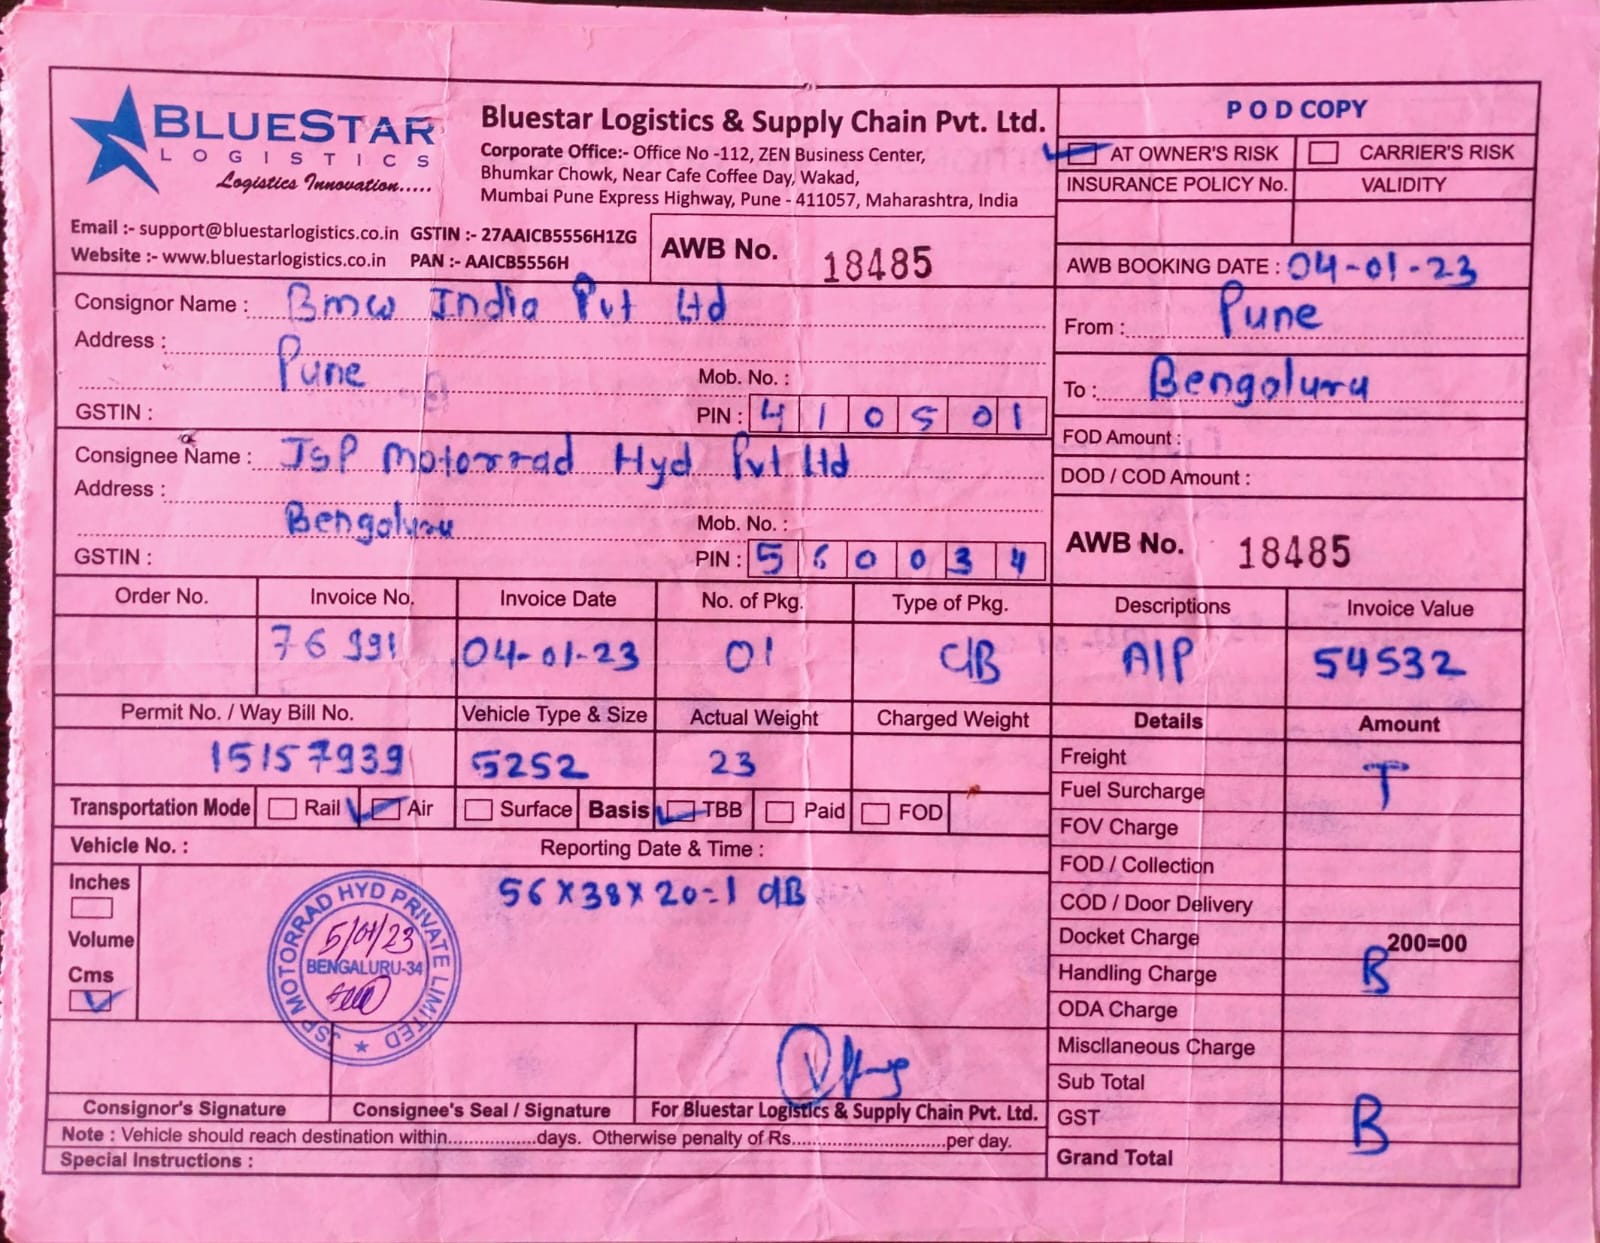 BLUESTAR
LOGISTICS
Logistics Innovation.....
Bluestar Logistics & Supply Chain Pvt. Ltd.
Corporate Office:- Office No -112, ZEN Business Center,
Bhumkar Chowk, Near Cafe Coffee Day, Wakad,
Mumbai Pune Express Highway, Pune - 411057, Maharashtra, India
Email :- support@bluestarlogistics.co.in GSTIN :- 27AAICB5556H1ZG
Website :- www.bluestarlogistics.co.in PAN :- AAICB5556H
AWB No. 18485
POD COPY
AT OWNER'S RISK CARRIER'S RISK
INSURANCE POLICY No. VALIDITY
AWB BOOKING DATE : 04-01-23
From : Pune
To : Bengaluru
FOD Amount :
DOD / COD Amount :
AWB No. 18485
Consignor Name : Bmw India Pvt Ltd
Address :
Pune Mob. No. :
GSTIN : PIN : 410501
Consignee Name : JSP Motorrad Hyd Pvt Ltd
Address :
Bengaluru Mob. No. :
GSTIN : PIN : 560034
Order No. Invoice No. Invoice Date No. of Pkg. Type of Pkg. Descriptions Invoice Value
76991 04-01-23 01 C/B A/P 54532
Permit No. / Way Bill No. Vehicle Type & Size Actual Weight Charged Weight Details Amount
15157939 5252 23
Transportation Mode Rail Air Surface Basis TBB Paid FOD
Vehicle No. : Reporting Date & Time :
Inches
Volume
Cms
56x38x20=1 C/B
JSP MOTORRAD HYD PRIVATE LIMITED
5/01/23
BENGALURU-34
Freight
T
Fuel Surcharge
FOV Charge
FOD / Collection
COD / Door Delivery
Docket Charge 200=00
B
Handling Charge
ODA Charge
Miscllaneous Charge
Sub Total
GST
B
Grand Total
Consignor's Signature Consignee's Seal / Signature For Bluestar Logistics & Supply Chain Pvt. Ltd.
Note : Vehicle should reach destination within.................days. Otherwise penalty of Rs.............................per day.
Special Instructions :